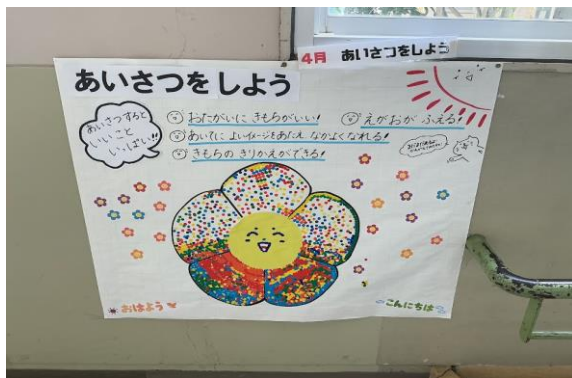 4月 あいさつをしよう
あいさつを しよう
あいさつすると
いいこと
いっぱい!!
おたがいに きもちがいい!
えがおが ふえる!
あいてに よいイメージをあたえ なかよくなれる!
きもちの きりかえができる!
おはよう
こんにちは